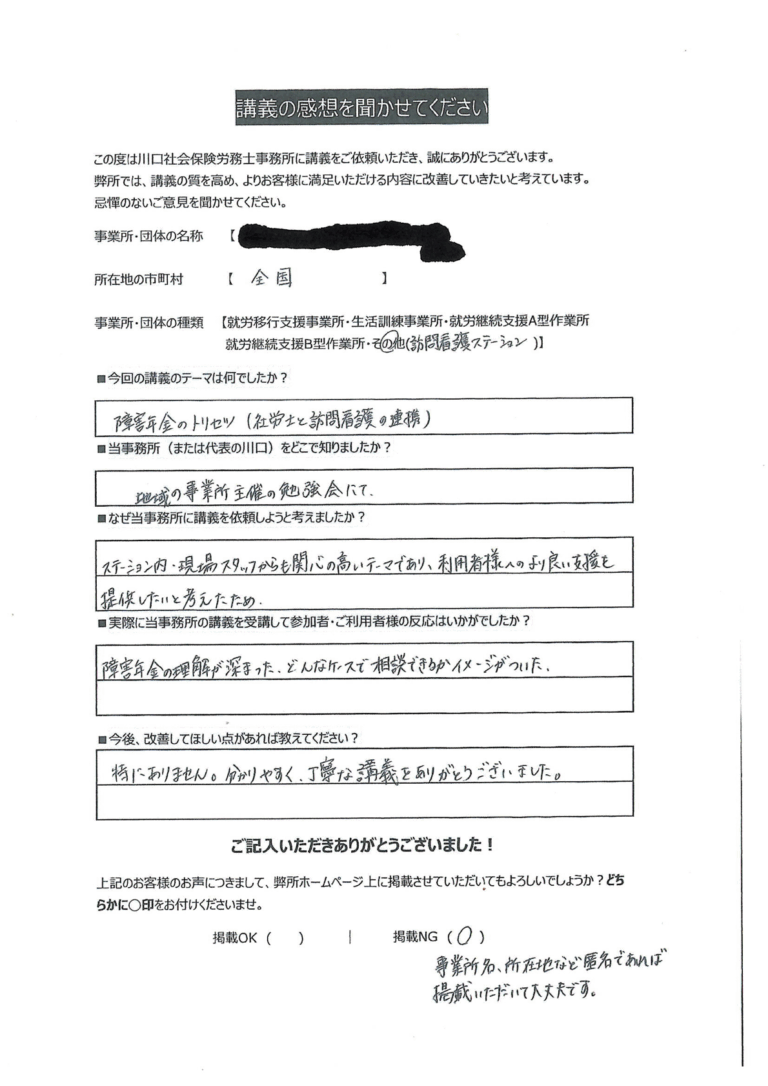 講義の感想を聞かせてください
この度は川口社会保険労務士事務所に講義をご依頼いただき、誠にありがとうございます。
弊所では、講義の質を高め、よりお客様に満足いただける内容に改善していきたいと考えています。
忌憚のないご意見を聞かせてください。
事業所・団体の名称 【
所在地の市町村 【 全国 】
事業所・団体の種類 【就労移行支援事業所・生活訓練事業所・就労継続支援A型作業所
就労継続支援B型作業所・その他(訪問看護ステーション )】
■今回の講義のテーマは何でしたか？
障害年金のトリセツ（社労士と訪問看護の連携）
■当事務所（または代表の川口）をどこで知りましたか？
地域の事業所主催の勉強会にて.
■なぜ当事務所に講義を依頼しようと考えましたか？
ステーション内・現場スタッフからも関心の高いテーマであり、利用者様へのより良い支援を
提供したいと考えたため.
■実際に当事務所の講義を受講して参加者・ご利用者様の反応はいかがでしたか？
障害年金の理解が深まった、どんなケースで相談できるかイメージがついた、
■今後、改善してほしい点があれば教えてください？
特にありません。分かりやすく、丁寧な講義をありがとうございました。
ご記入いただきありがとうございました！
上記のお客様のお声につきまして、弊所ホームページ上に掲載させていただいてもよろしいでしょうか？どち
らかに〇印をお付けくださいませ。
掲載OK（ ） | 掲載NG（〇）
事業所名、所在地など匿名であれば
掲載いただいて大丈夫です。